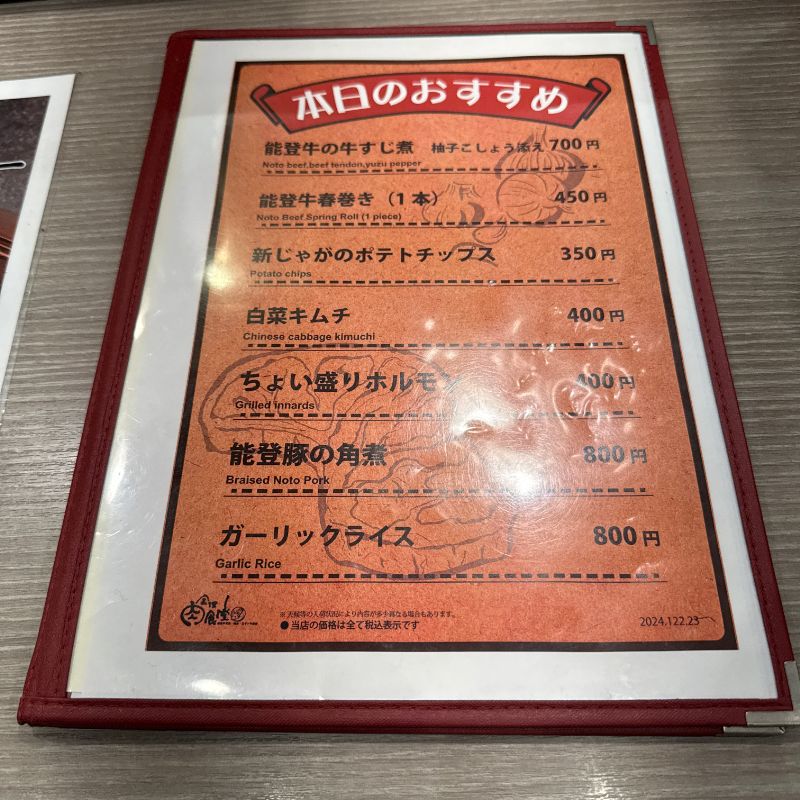 本日のおすすめ
能登牛の牛すじ煮 柚子こしょう添え 700円
Noto beef,beef tendon,yuzu pepper
能登牛春巻き（1本） 450円
Noto Beef Spring Roll (1 piece)
新じゃがのポテトチップス 350円
Potato chips
白菜キムチ 400円
Chinese cabbage kimuchi
ちょい盛りホルモン 400円
Grilled innards
能登豚の角煮 800円
Braised Noto Pork
ガーリックライス 800円
Garlic Rice
※天候等の入荷状況により内容が多少異なる場合もあります。
●当店の価格は全て税込表示です
2024.122.23